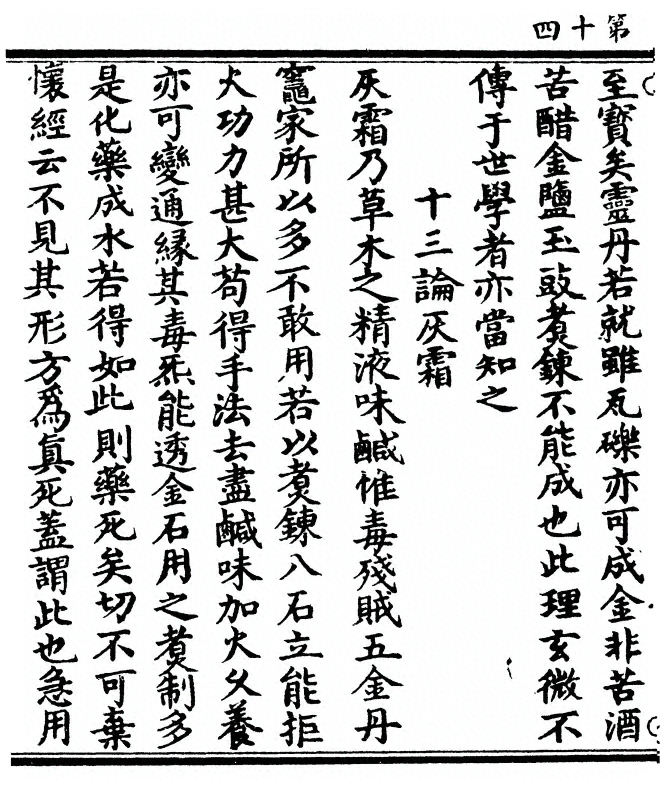 第十四
至寳矣靈丹若就雖瓦礫亦可成金非苦酒
苦醋金鹽玉豉煑鍊不能成也此理玄微不
傳于世學者亦當知之
十三論灰霜
灰霜乃草木之精液味鹹惟毒殘賊五金丹
竈家所以多不敢用若以煑鍊八石立能拒
火功力甚大苟得手法去盡鹹味加火乆養
亦可變通緣其毒炁能透金石用之煑制多
是化藥成水若得如此則藥死矣切不可棄
懷經云不見其形方爲眞死蓋謂此也急用